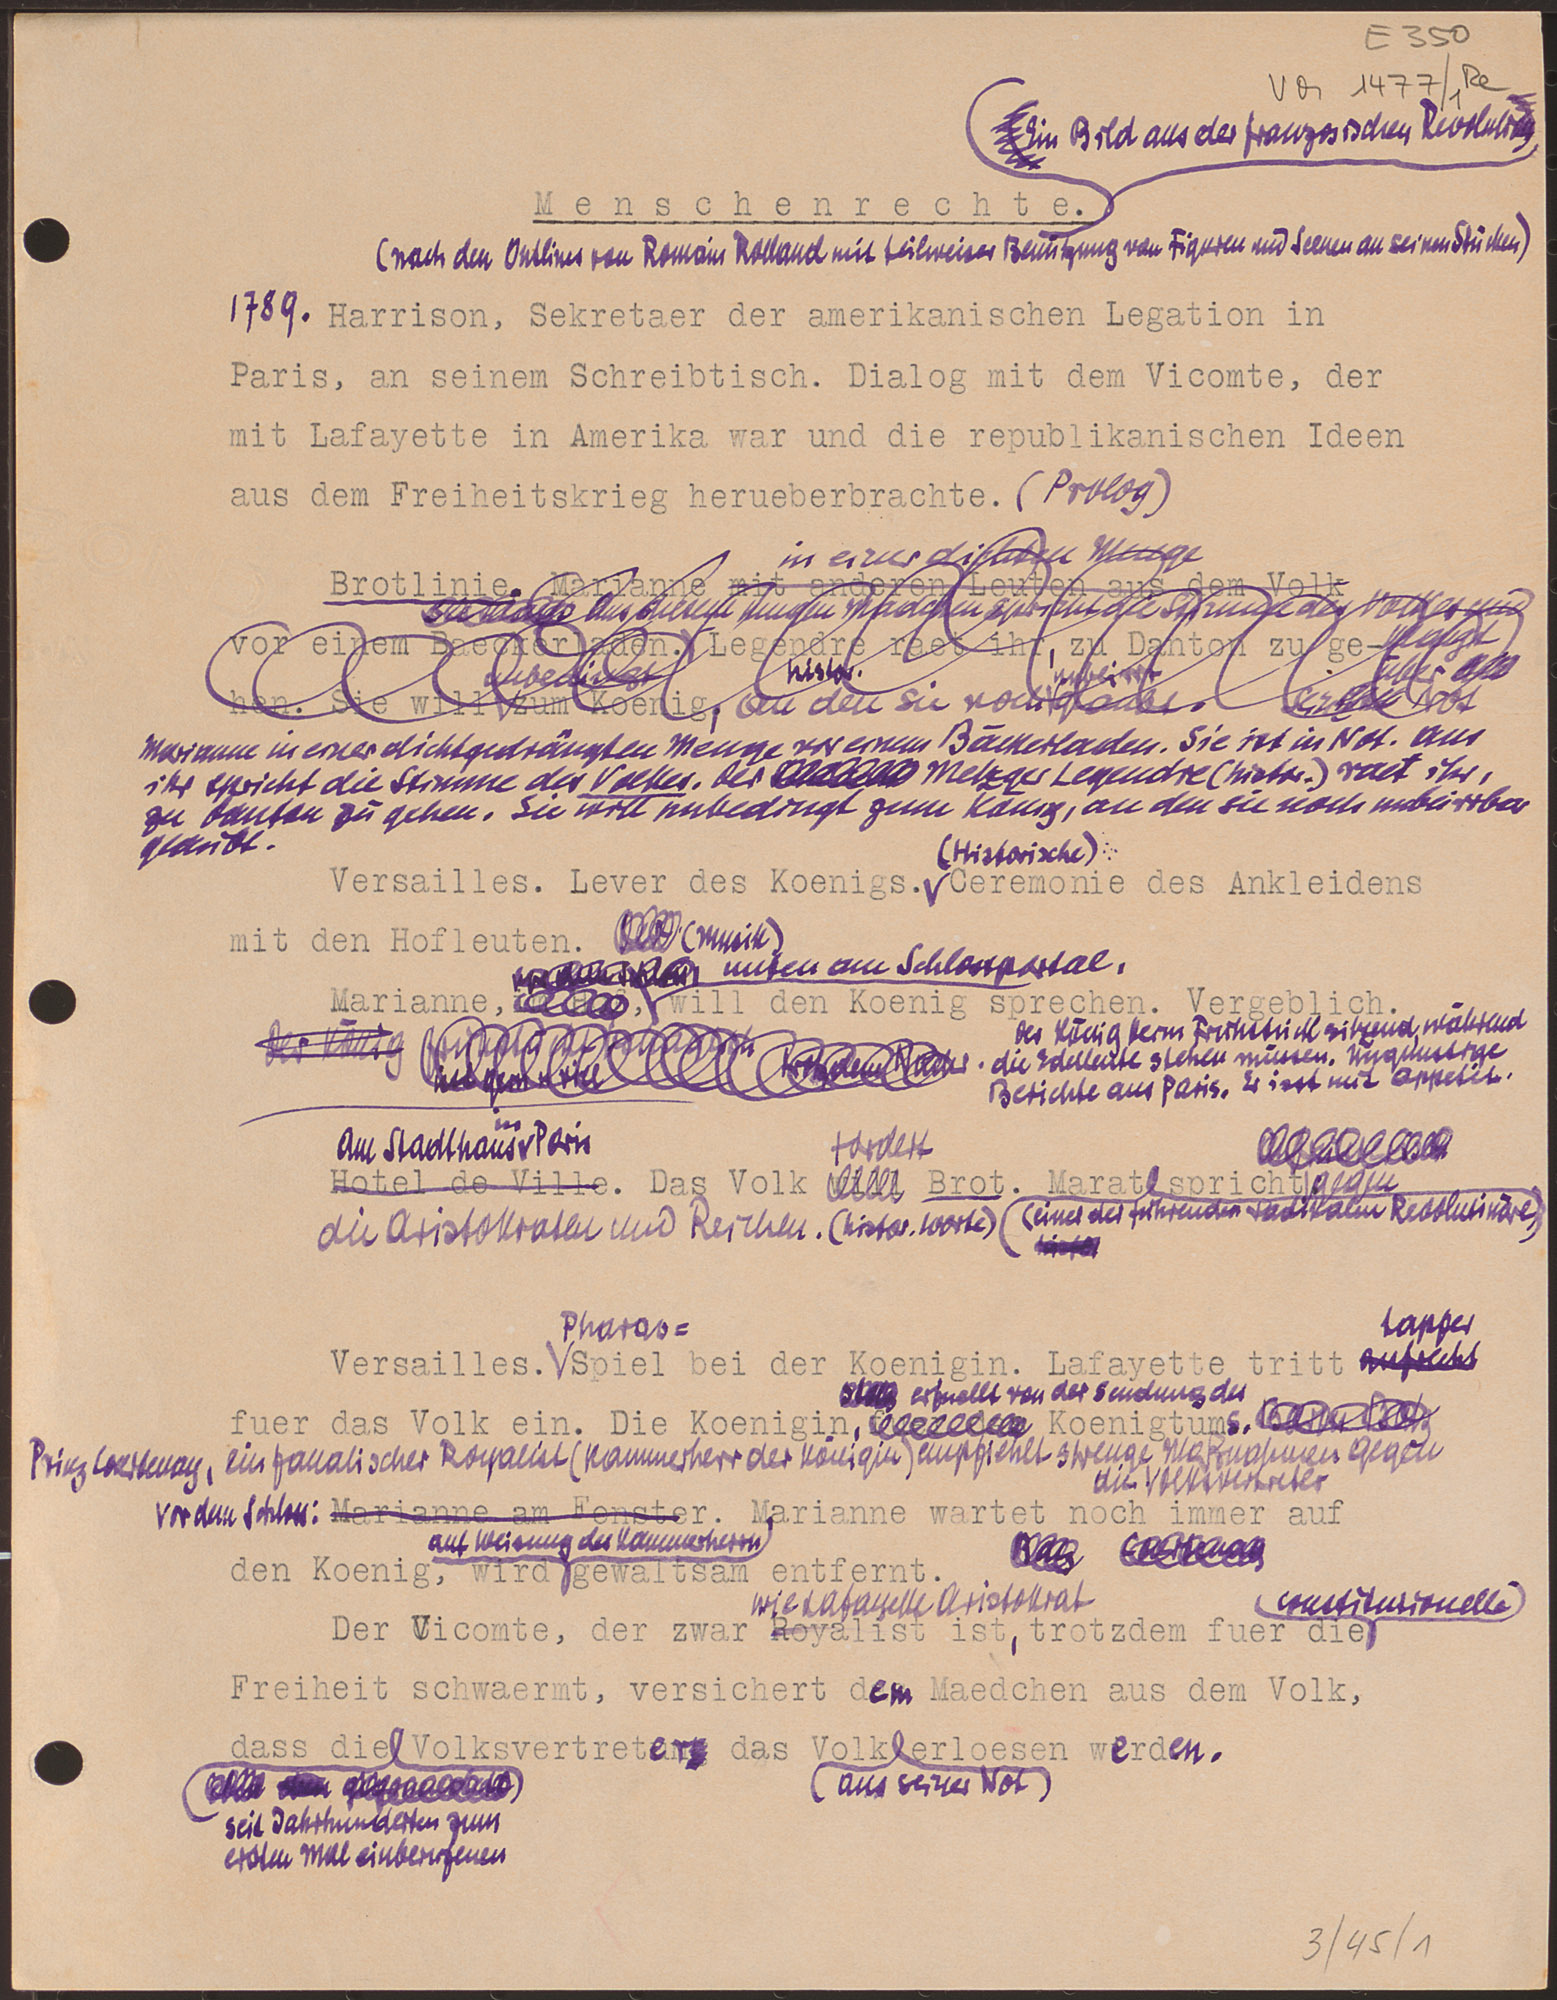 E 350
1477/1 Re
(Ein Bild aus der französischen Revolution)
Menschenrechte.
(nach den Outlines von Romain Rolland mit teilweiser Benützung von Figuren und Scenen an seinen Stücken)
1789. Harrison, Sekretaer der amerikanischen Legation in
Paris, an seinem Schreibtisch. Dialog mit dem Vicomte, der
mit Lafayette in Amerika war und die republikanischen Ideen
aus dem Freiheitskrieg herueberbrachte. (Prolog)
in einer dichten Menge
Brotlinie. Marianne mit anderen Leuten aus dem Volk
Aus diesem jungen Mädchen spricht die Stimme des Volkes und
vor einem Baeckerladen. Legendre raet ihr, zu Danton zu ge-
unbedingt histor. unbeirrt über
hen. Sie will zum Koenig, an den sie noch glaubt. Not
Marianne in einer dichtgedrängten Menge vor einem Bäckerladen. Sie ist in Not. Aus
ihr spricht die Stimme des Volkes. Der Metzger Legendre (histor.) raet ihr,
zu Danton zu gehen. Sie will unbedingt zum König, an den sie noch unbeirrbar
glaubt.
(Historische)
Versailles. Lever des Koenigs. Ceremonie des Ankleidens
mit den Hofleuten. (Musik)
unten am Schlossportal.
Marianne, will den Koenig sprechen. Vergeblich.
Der König
Der König beim Frühstück sitzend, während
die Edelleute stehen müssen. Ungünstige
Berichte aus Paris. Er isst mit Appetit.
Am Stadthaus in Paris fordert
Hotel de Ville. Das Volk Brot. Marat spricht gegen
die Aristokraten und Reichen. (histor. Worte) (einer der führenden radikalen Revolutionäre)
Pharao= tapfer
Versailles. Spiel bei der Koenigin. Lafayette tritt aufrecht
erfuellt von der Sendung des
fuer das Volk ein. Die Koenigin, Koenigtums.
Prinz Courtenay, ein fanatischer Royalist (Kammerherr der Königin) empfiehlt strenge Maßnahmen gegen
die Volksvertreter
Vor dem Schloss: Marianne am Fenster. Marianne wartet noch immer auf
auf Weisung des Kammerherrn
den Koenig, wird gewaltsam entfernt.
wie Lafayette Aristokrat (constitutionelle)
Der Vicomte, der zwar Royalist ist, trotzdem fuer die
Freiheit schwaermt, versichert dem Maedchen aus dem Volk,
dass die Volksvertreter das Volk erloesen werden.
(aus seiner Not)
seit Jahrhunderten zum
ersten Mal einberufenen
3/45/1